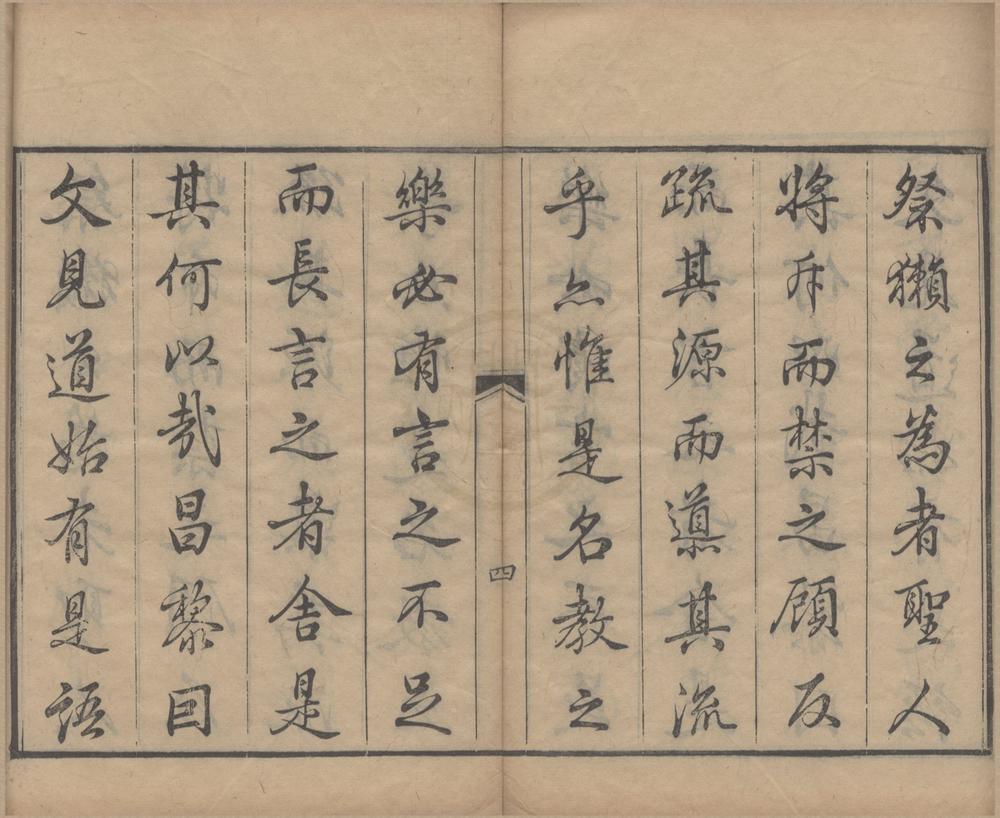 祭獺之為者聖人
將斥而禁之顧反
疏其源而導其流
乎亦惟是名教之
四
樂必有言之不足
而長言之者舍是
其何以哉昌黎因
文見道始有是語